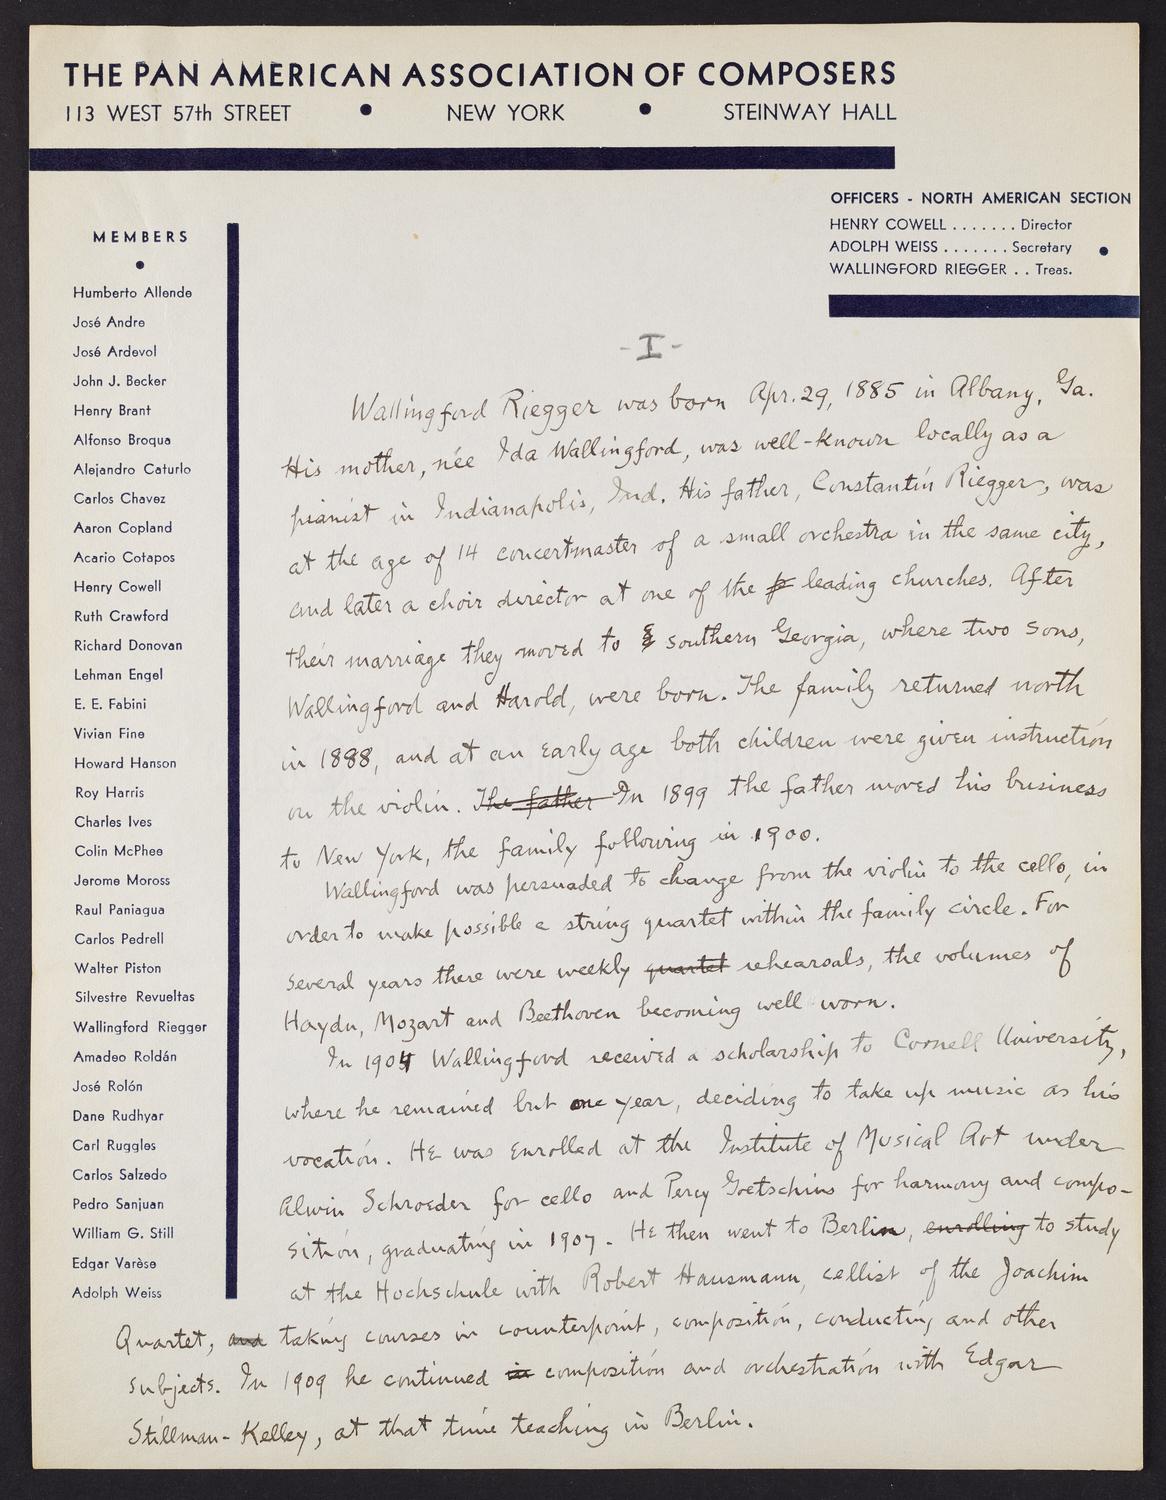 THE PAN AMERICAN ASSOCIATION OF COMPOSERS
113 WEST 57th STREET • NEW YORK • STEINWAY HALL
OFFICERS - NORTH AMERICAN SECTION
HENRY COWELL . . . . . . . Director
ADOLPH WEISS . . . . . . . Secretary •
WALLINGFORD RIEGGER . . Treas.
MEMBERS
•
Humberto Allende
José Andre
José Ardevol
John J. Becker
Henry Brant
Alfonso Broqua
Alejandro Caturlo
Carlos Chavez
Aaron Copland
Acario Cotapos
Henry Cowell
Ruth Crawford
Richard Donovan
Lehman Engel
E. E. Fabini
Vivian Fine
Howard Hanson
Roy Harris
Charles Ives
Colin McPhee
Jerome Moross
Raul Paniagua
Carlos Pedrell
Walter Piston
Silvestre Revueltas
Wallingford Riegger
Amadeo Roldán
José Rolón
Dane Rudhyar
Carl Ruggles
Carlos Salzedo
Pedro Sanjuan
William G. Still
Edgar Varèse
Adolph Weiss
-I-
Wallingford Riegger was born Apr. 29, 1885 in Albany, Ga.
His mother, née Ida Wallingford, was well-known locally as a
pianist in Indianapolis, Ind. His father, Constantin Riegger, was
at the age of 14 concertmaster of a small orchestra in the same city,
and later a choir director at one of the p leading churches. After
their marriage they moved to southern Georgia, where two sons,
Wallingford and Harold, were born. The family returned north
in 1888, and at an early age both children were given instruction
on the violin. The father In 1899 the father moved his business
to New York, the family following in 1900.
Wallingford was persuaded to change from the violin to the cello, in
order to make possible a string quartet within the family circle. For
several years there were weekly quartet rehearsals, the volumes of
Haydn, Mozart and Beethoven becoming well worn.
In 1904 Wallingford received a scholarship to Cornell University,
where he remained but one year, deciding to take up music as his
vocation. He was enrolled at the Institute of Musical Art under
Alwin Schroeder for cello and Percy Goetschius for harmony and compo-
sition, graduating in 1907. He then went to Berlin, enrolling to study
at the Hochschule with Robert Hausmann, cellist of the Joachim
Quartet, and taking courses in counterpoint, composition, conducting and other
subjects. In 1909 he continued in composition and orchestration with Edgar
Stillman-Kelley, at that time teaching in Berlin.